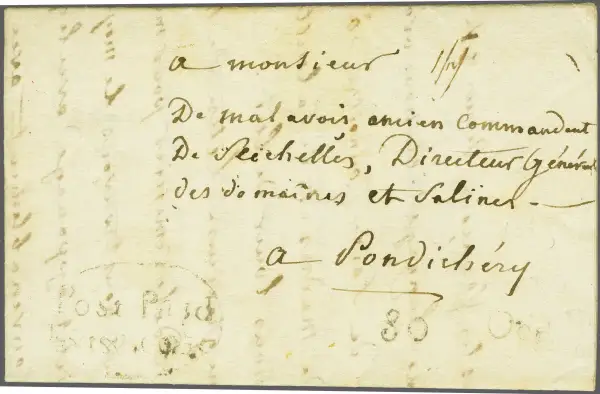 a monsieur
De malavois ancien Commandant
De Seichelles, Directeur Général
des domaines et Salines
a Pondichéry
80